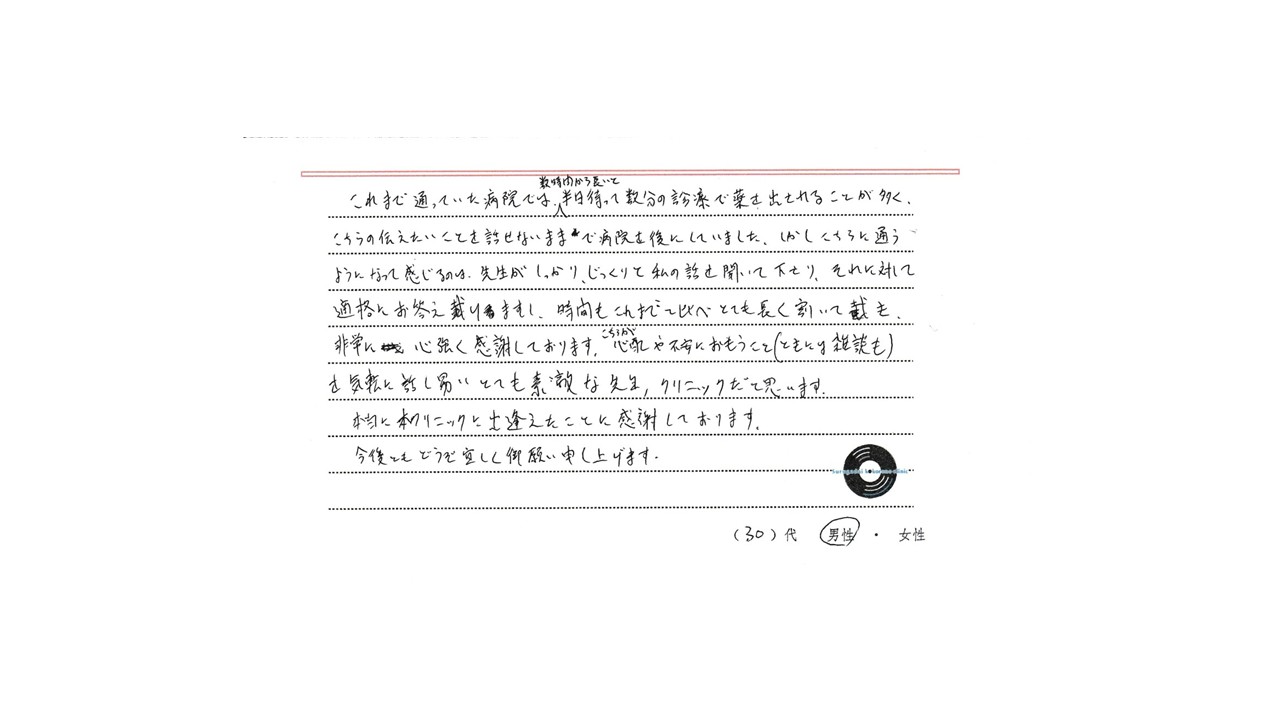 これまで通っていた病院では、数時間から長いと半日待って数分の診療で薬を出されることが多く、
こちらの伝えたいことを話せないままで病院を後にしていました。しかしこちらに通う
ようになって感じるのは、先生がしっかり、じっくりと私の話を聞いて下さり、それに対して
適格にお答え戴けますし、時間もこれまでと比べとても長く割いて戴き、
非常に心強く感謝しております。こちらが心配や不安におもうこと(ときには雑談も)
を気軽に話し易いとても素敵な先生、クリニックだと思います。
本当に本クリニックに出逢えたことに感謝しております。
今後ともどうぞ宜しく御願い申し上げます。
(30)代 男性・女性